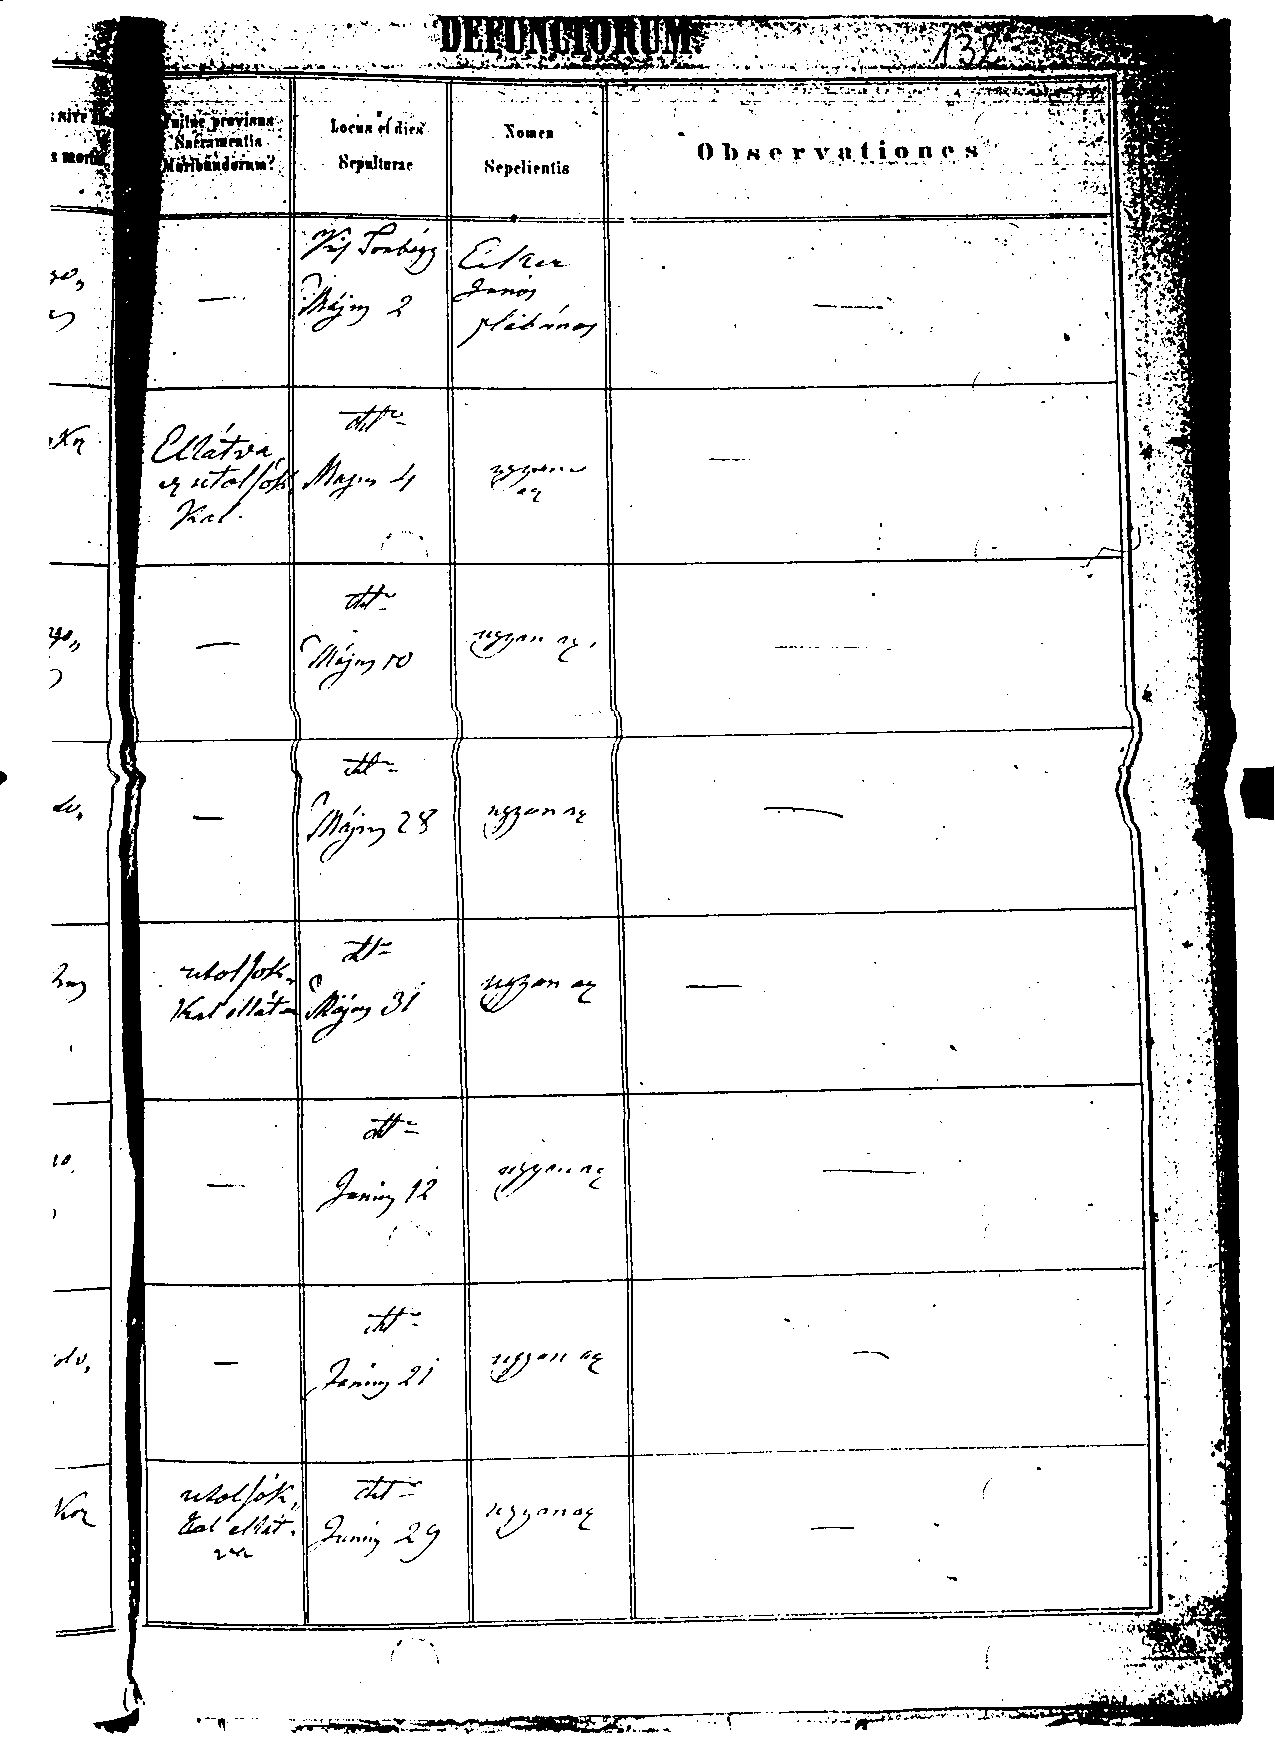 DEFUNCTORUM
132
provisus
Sacramentis
Moribundorum?
Locus et dies
Sepulturae
Nomen
Sepelientis
Observationes
Május 2
János
plébános
Ellátva
az utolsók
Kal.
dtt
Május 4
ugyan
az
dtt
Május 10
ugyan az.
dtt
Május 28
ugyan az
utolsók
Kal ellátva
dtt
Május 31
ugyan az
dtt
Június 12
ugyan az
dtt
Június 21
ugyan az
utolsók,
kal ellát-
va
dtt
Június 29
ugyanaz